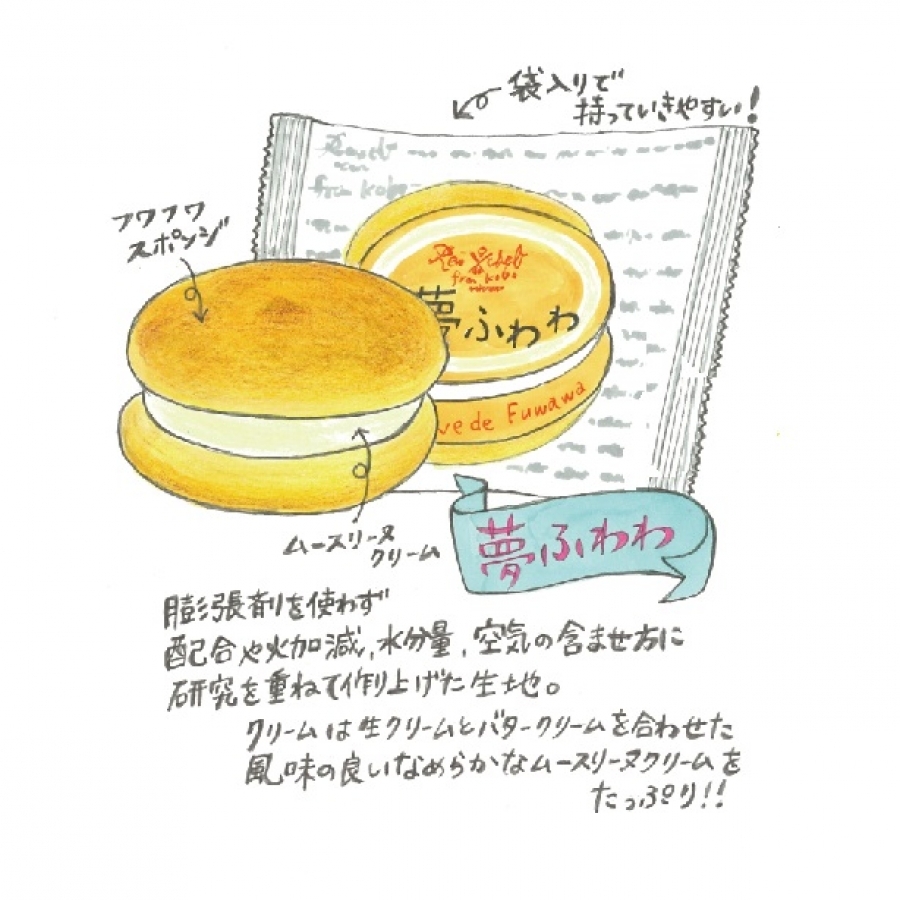 袋入りで
持っていきやすい!
フワフワ
スポンジ
from kobe
from kobe
夢ふわわ
ve de Fuwawa
ムースリーヌ
クリーム
夢ふわわ
膨張剤を使わず
配合や火加減、水分量、空気の含ませ方に
研究を重ねて作り上げた生地。
クリームは生クリームとバタークリームを合わせた
風味の良いなめらかなムースリーヌクリームを
たっぷり!!